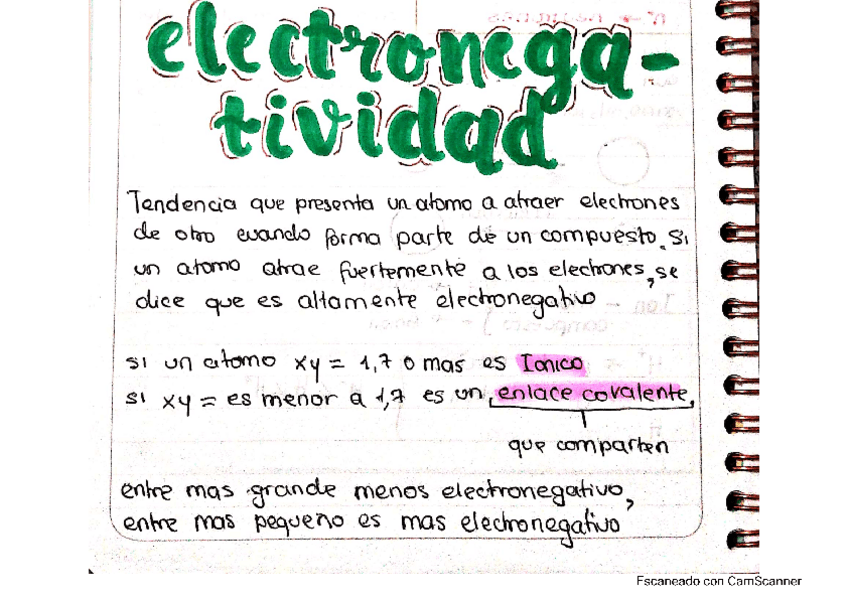 electronega-
tividad
Tendencia que presenta un atomo a atraer electrones
de otro cuando forma parte de un compuesto. Si
un atomo atrae fuertemente a los electrones, se
dice que es altamente electronegativo
si un atomo xy = 1,7 o mas es Ionico
si xy = es menor a 1,7 es un enlace covalente,
que comparten
entre mas grande menos electronegativo,
entre mas pequeño es mas electronegativo
Escaneado con CamScanner